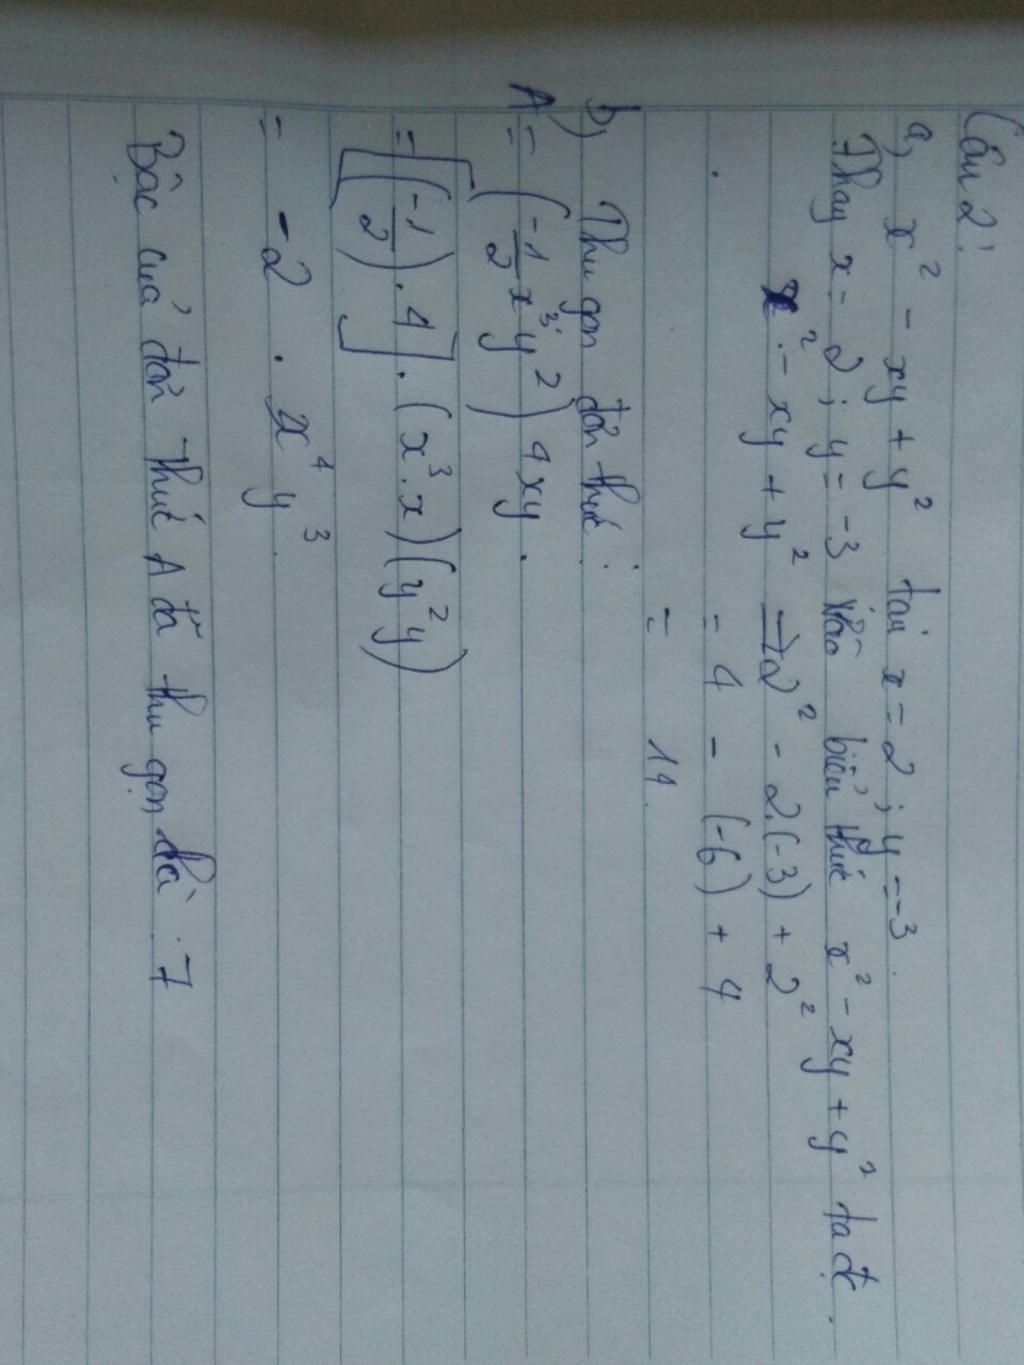 Câu 2:
a, x² - xy + y² tại x = 2 ; y = -3.
Thay x = 2 ; y = -3 vào biểu thức x² - xy + y² ta đc.
x² - xy + y² → 2² - 2.(-3) + 2²
= 4 - (-6) + 4
= 14.
b, Thu gọn đơn thức :
A = (-1/2 x³y²) 4xy.
= [(-1/2) . 4] . (x³.x)(y²y)
= -2 . x⁴y³.
Bậc của đơn thức A đã thu gọn là 7